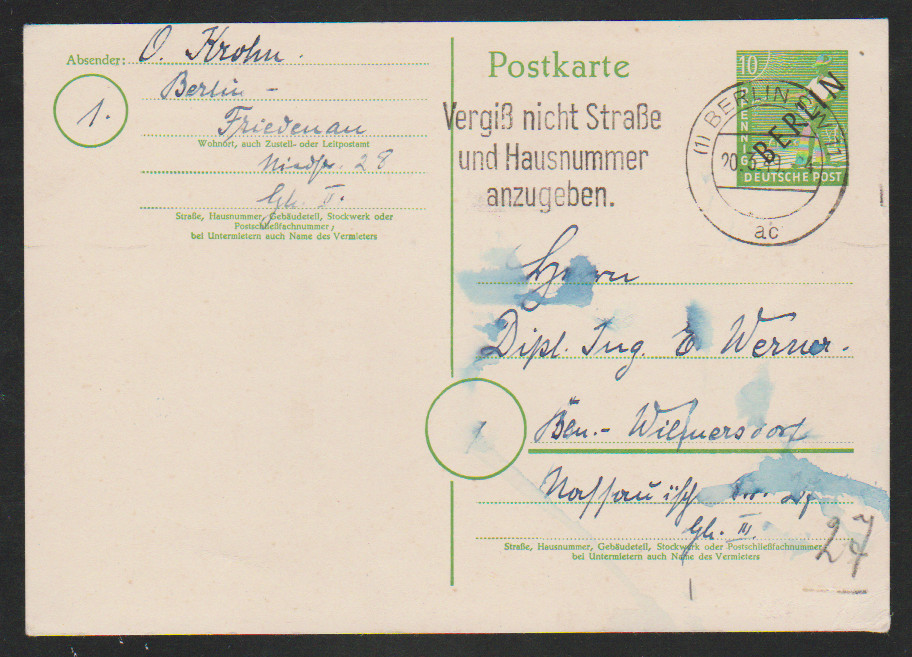 Absender: O. Krohn.
1.
Berlin-
Friedenau
Wohnort, auch Zustell- oder Leitpostamt
28
Gh. II.
Straße, Hausnummer, Gebäudeteil, Stockwerk oder
Postschließfachnummer;
bei Untermietern auch Name des Vermieters
Postkarte
Vergiß nicht Straße
und Hausnummer
anzugeben.
10
PFENNIG
DEUTSCHE POST
BERLIN
(1) BERLIN
20.
ac
Herrn
Dipl. Ing. E Werner.
1
Bln.- Wilmersdorf
Nassauische
Gh. III.
27
Straße, Hausnummer, Gebäudeteil, Stockwerk oder Postschließfachnummer;
bei Untermietern auch Name des Vermieters